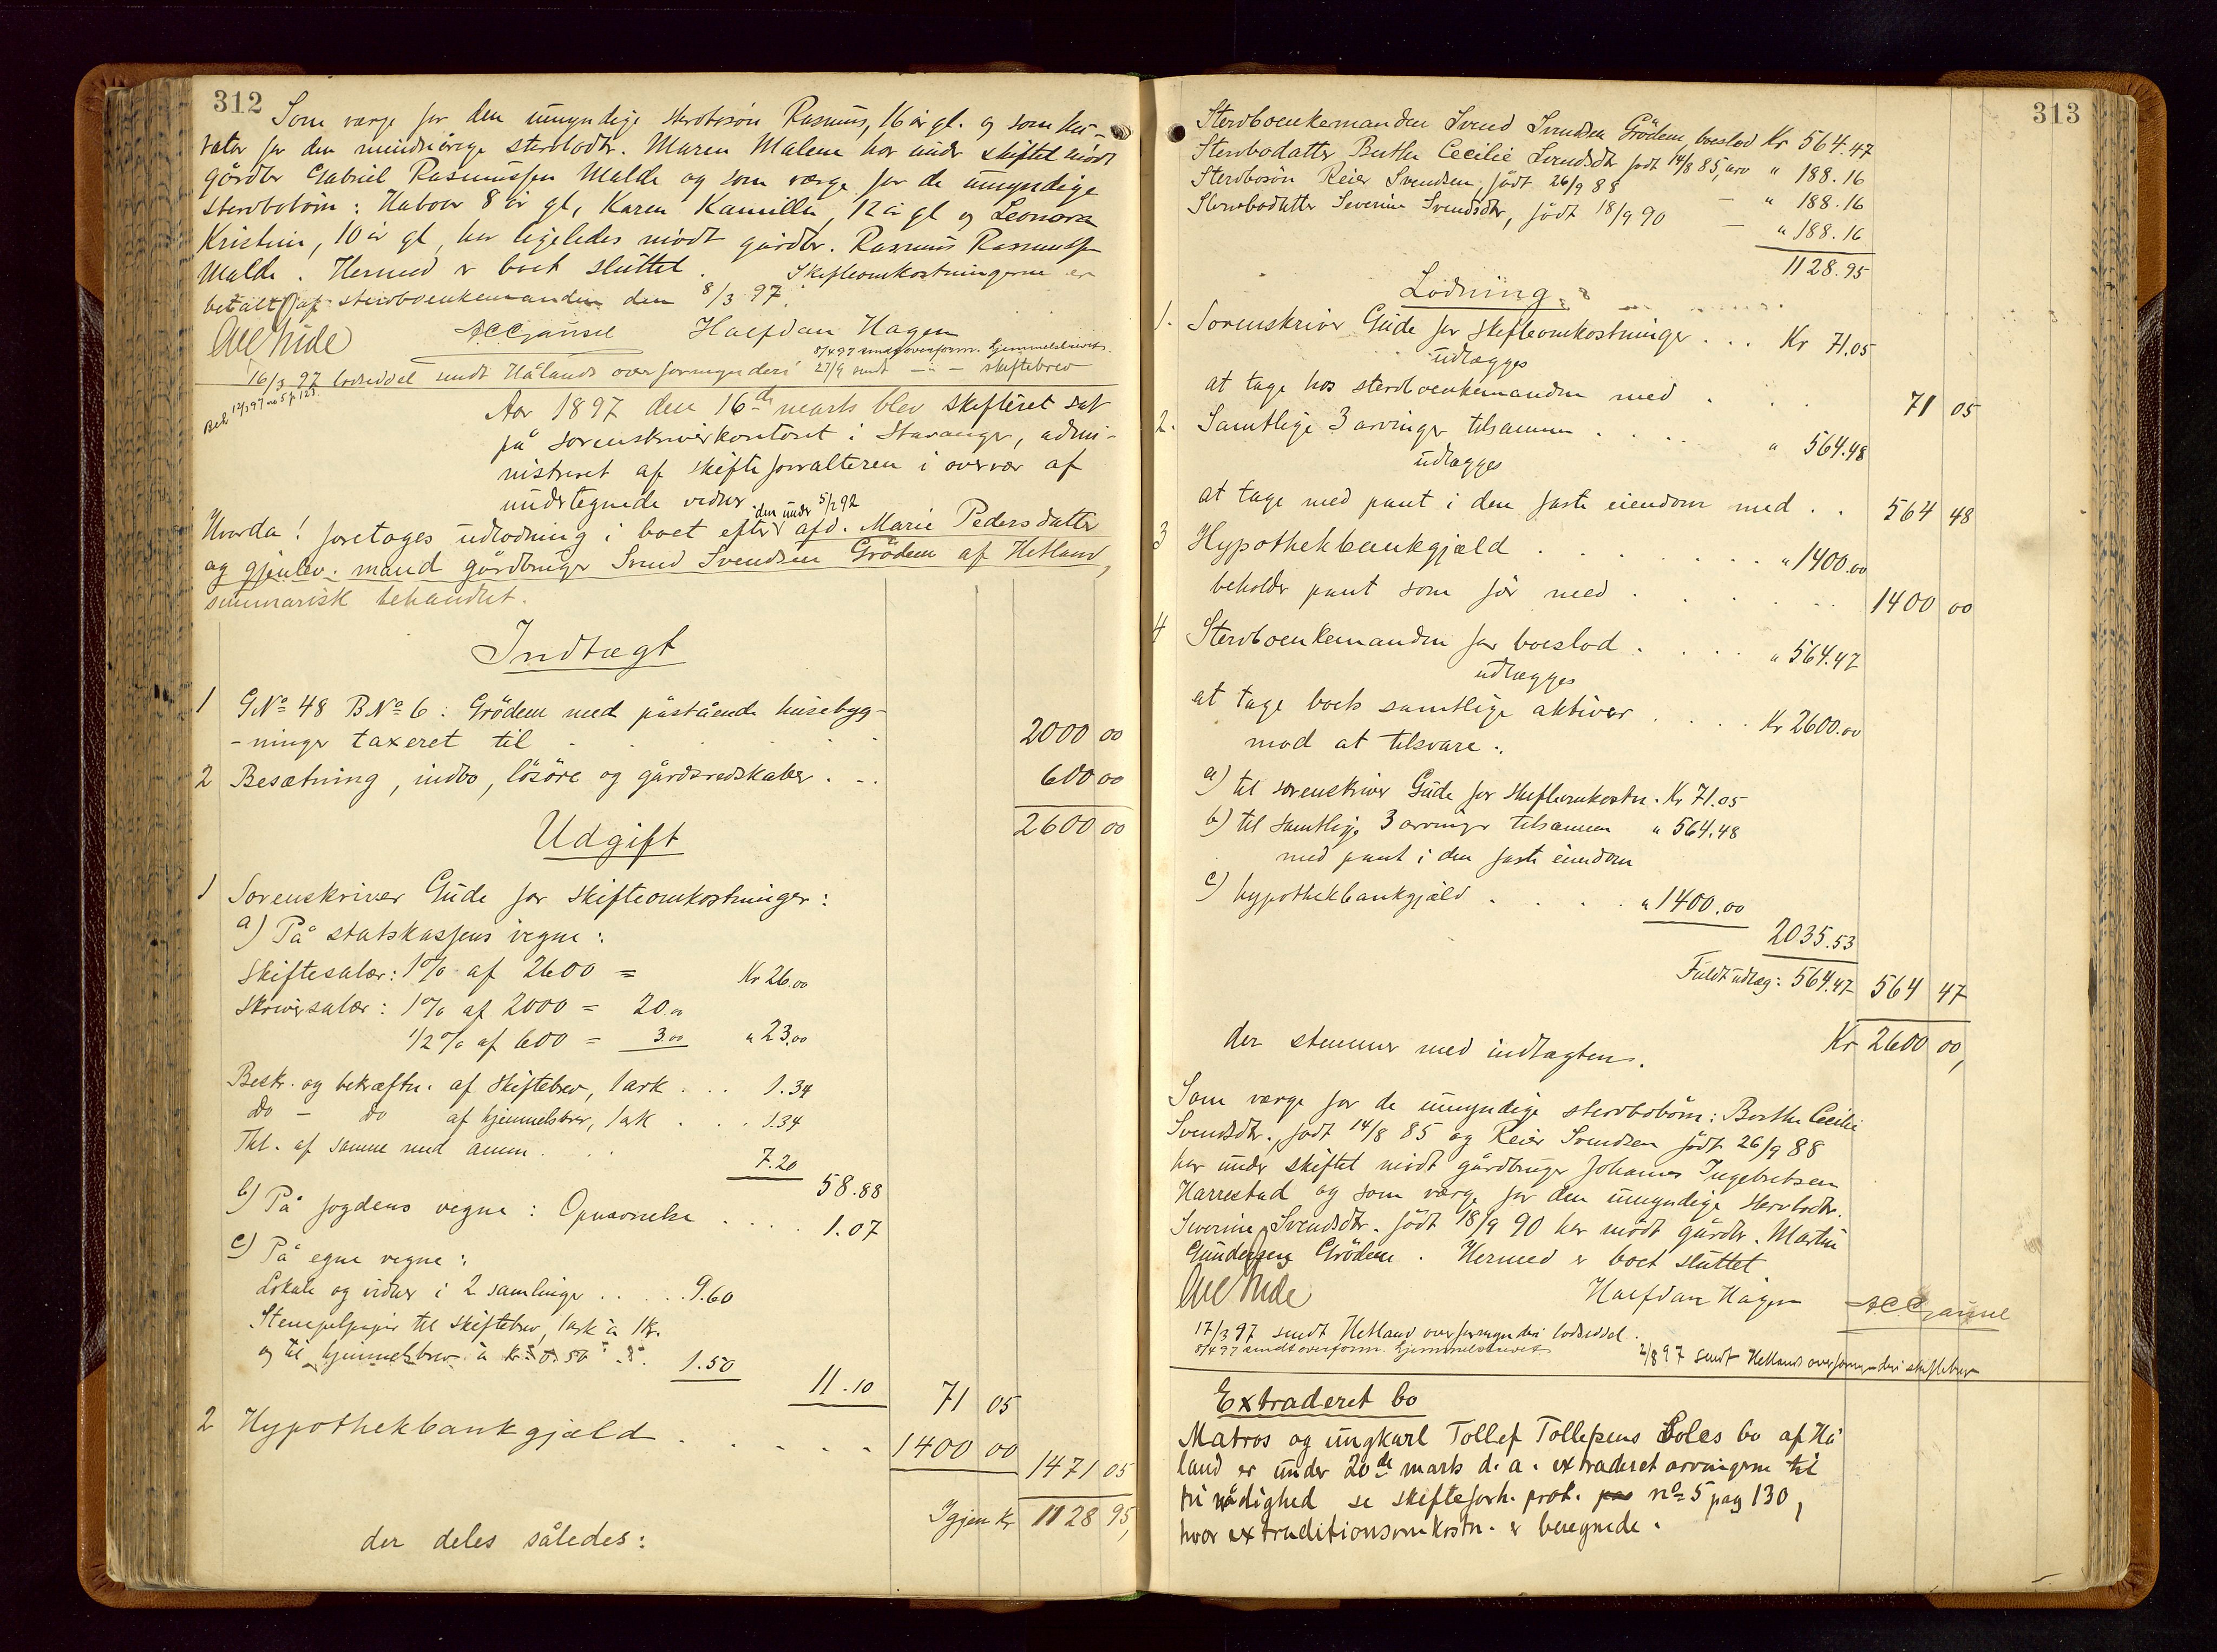 312
Som værge for den umyndige sterbosön Rasmus, 16 år gl. og som ku-
rator for den mindreårige sterbodtr. Maren Malene har under skiftet mödt
gårdbr Gabriel Rasmussen Malde og som værge for de umyndige
sterbobörn: Håvar 8 år gl, Karen Kamilla, 12 år gl og Leonora
Kristine, 10 år gl, har ligeledes mödt gårdbr. Rasmus Rasmuss.
Malde. Hermed er boet sluttet. Skifteomkostningerne er
betalt af sterboenkemanden den 8/3 97.
Ove Gude A C Gausel Halfdan Hagen
8/4 97 sendt overform. hjemmelsbrevet.
16/3 97 lodseddel sendt Hålands overformynderi 27/9 sendt - " - skiftebrev
Beh 12/3 97 no 5 p 123.
Aar 1897 den 16de marts blev skifteret sat
på sorenskriverkontoret i Stavanger, admi-
nistreret af skifteforvalteren i overvær af
undertegnede vidner
den under 5/12 92
Hvorda! foretoges udlodning i boet efter afd. Marie Pedersdatter
og gjenlev. mand gårdbruger Svend Svendsen Grödem af Hetland,
summarisk behandlet.
Indtægt
1 GNo 48 BNo 6: Grödem med påstående husebyg-
-ninger taxeret til . . . . . 2000 00
2 Besætning, indbo, lösöre og gårdsredskaber . - . 600 00
2600 00
Udgift
1 Sorenskriver Gude for skifteomkostninger:
a) På statskassens vegne:
Skiftesalær: 1% af 2600 = Kr 26.00
Skriversalær: 1% af 2000 = 20.00
1/2% af 600 = 3.00 " 23.00
Beskr. og bekræftn. af skiftebrev, 1 ark . . . 1.34
do - do af hjemmelsbrev, 1 ark . . . 1.34
Thl. af samme med anm. . . 7.20
58.88
b) På fogdens vegne: Opnævnelse . . . . 1.07
c) På egne vegne:
Lokale og vidner i 2 samlinger . . . . . 9.60
Stempelpapir til skiftebrev, 1 ark à 1 kr.
og til hjemmelsbrev à kr 0.50 1.50
11.10 71 05
2 Hypothekbankgjæld . . . . . 1400 00
1471 05
Igjen Kr 1128 95,
der deles således:
313
Sterboenkemanden Svend Svendsen Grödem, boeslod Kr 564.47
Sterbodatter Berthe Cecilie Svendsdtr födt 14/8 85, arv " 188.16
Sterbosön Reier Svendsen, födt 26/9 88 - " 188.16
Sterbodatter Severine Svendsdtr, födt 18/9 90 - " 188.16
1128.95
Lodning:
1. Sorenskriver Gude for skifteomkostninger . . . Kr 71.05
udlægges
at tage hos sterboenkemanden med . . . 71 05
2. Samtlige 3 arvinger tilsammen . . . . " 564.48
udlægges
at tage med pant i den faste eiendom med . . 564 48
3 Hypothekbankgjæld . . . . . . . " 1400.00
beholder pant som för med . . . . . 1400 00
4 Sterboenkemanden for boeslod . . . . " 564.47
udlægges
at tage boets samtlige aktiver . . . . Kr 2600.00
mod at tilsvare:
a) til sorenskriver Gude for skifteomkostn. Kr 71.05
b) til samtlige 3 arvinger tilsammen " 564.48
med pant i den faste eiendom
c) hypothekbankgjæld . . . . " 1400.00
2035.53
Fuldt udlæg: 564.47 564 47
der stemmer med indtægten. Kr 2600 00,
Som værge for de umyndige sterbobörn: Berthe Cecilie
Svendsdtr. födt 14/8 85 og Reier Svendsen födt 26/9 88
har under skiftet mödt gårdbruger Johannes Ingebretsen
Harrestad og som værge for den umyndige sterbodtr.
Severine Svendsdtr. födt 18/9 90 har mödt gårdbr. Martin
Gundersen Grödem. Hermed er boet sluttet
Ove Gude Halfdan Hagen A C Gausel
17/3 97 sendt Hetland overformynderi lodseddel.
8/4 97 sendt overform. hjemmelsbrevet
2/8 97 sendt Hetlands overformynderi skiftebrev
Extraderet bo
Matros og ungkarl Tollef Tollefsens Soles bo af Hå
land er under 20de marts d. a. extraderet arvingerne til
fri rådighed se skifteforh. prot. no 5 pag 130,
hvor extraditionsomkostn. er beregnede.